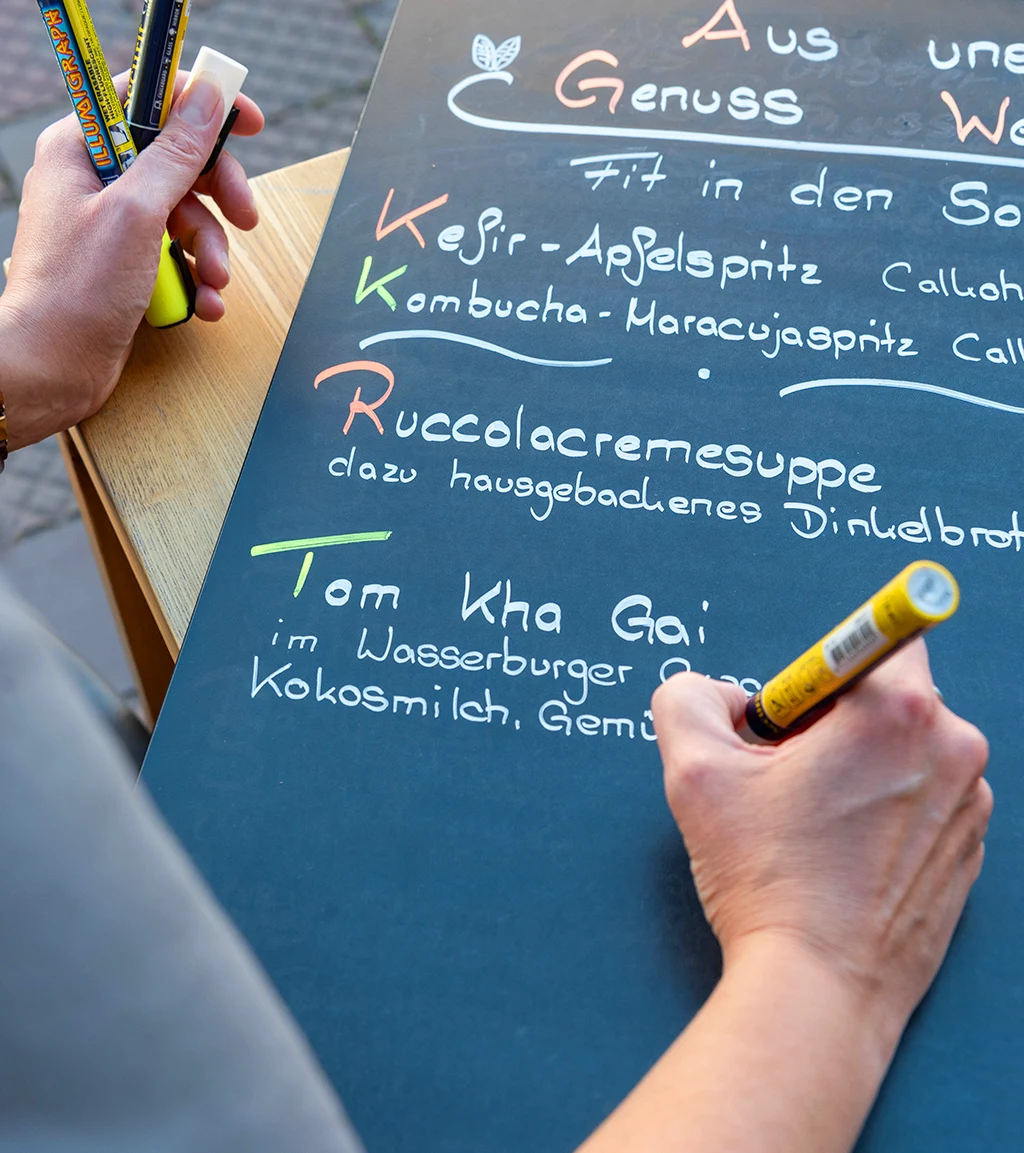 Aus uns
Genuss We
Fit in den So
Kefir-Apfelspritz Calkoh
Kombucha-Maracujaspritz Calk
Ruccolacremesuppe
dazu hausgebackenes Dinkelbrot
Tom Kha Gai
im Wasserburger
Kokosmilch, Gemü
ILLUMIGRAPH